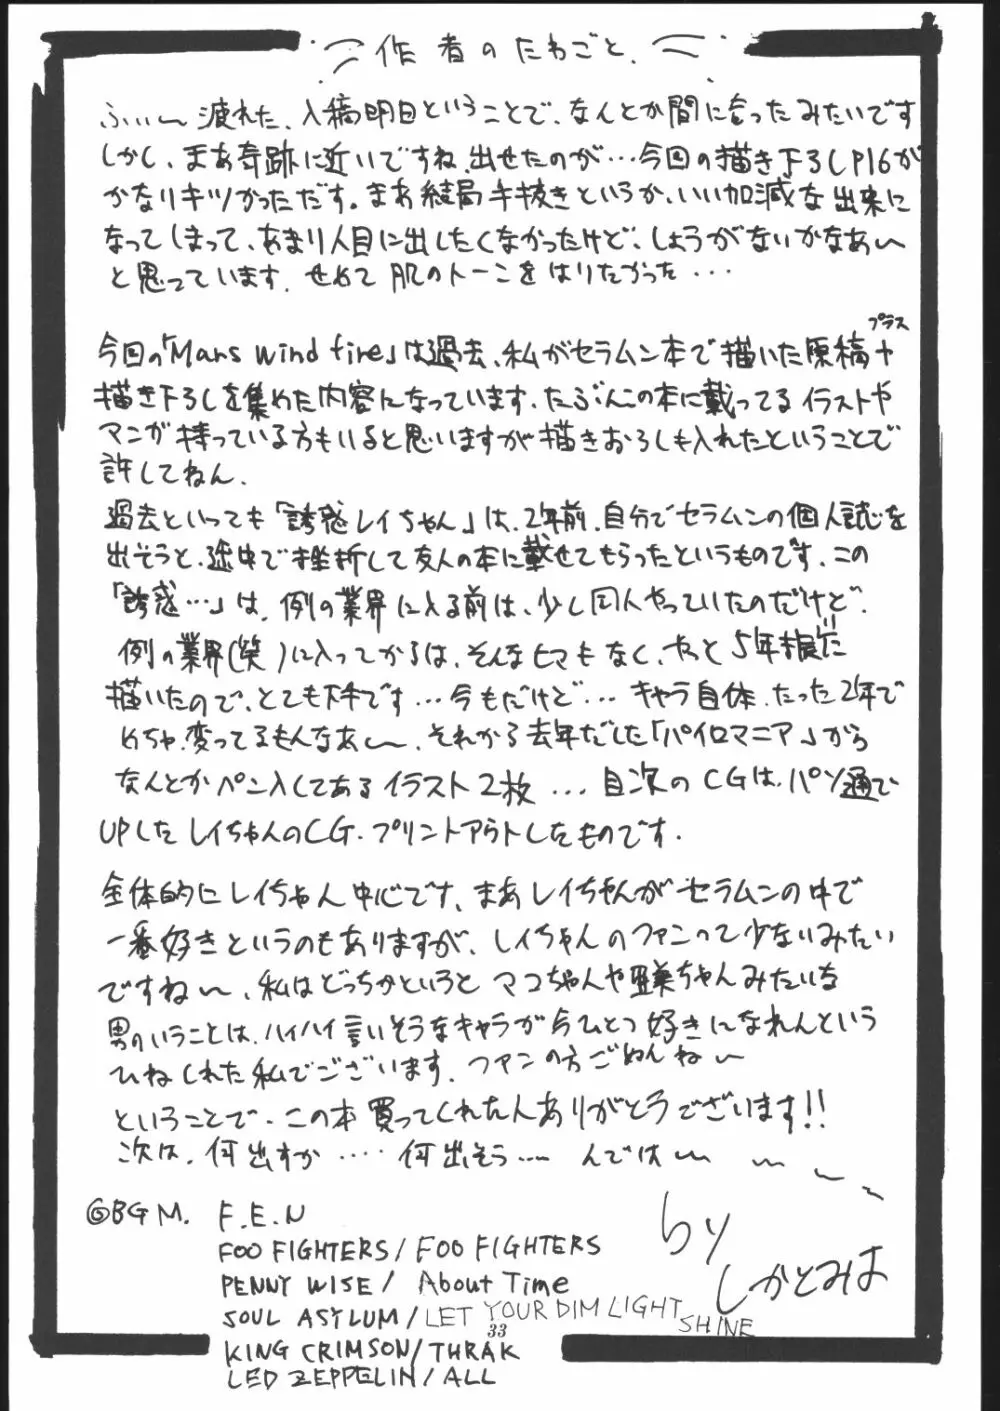 作者のたわごと.
ふぃ〜疲れた、入稿明日ということで、なんとか間に合ったみたいです
しかし、まあ奇跡に近いですね、出せたのが…今回の描き下ろしP16が
かなりキツかっただす。まあ結局手抜きというか、いい加減な出来に
なってしまって、あまり人目に出したくなかったけど、しょうがないかなあ〜
と思っています. せめて肌のトーンをはりたかった・・・
プラス
今回の「Mars wind fire」は過去、私がセラムン本で描いた原稿+
描き下ろしを集めた内容になっています. たぶんこの本に載ってるイラストや
マンガ持っている方もいると思いますが描きおろしも入れたということで
許してねん.
過去といっても「誘惑レイちゃん」は、2年前、自分でセラムンの個人誌を
出そうと、途中で挫折して友人の本に載せてもらったというものです. この
「誘惑…」は、例の業界に入る前は、少し同人やっていたのだけど、
例の業界(笑)に入ってからは、そんなヒマもなく、やっと5年振りに
描いたので、とても下手です…今もだけど… キャラ自体、たった2年で
めちゃ変ってるもんなあ〜、それから去年だした「パイロマニア」から
なんとかペン入してあるイラスト2枚 … 目次のCGは、パソ通で
UPしたレイちゃんのCG、プリントアウトしたものです.
全体的にレイちゃん中心です、まあレイちゃんがセラムンの中で
一番好きというのもありますが、レイちゃんのファンって少ないみたい
ですね〜、私はどっちかというとマコちゃんや亜美ちゃんみたいな
男のいうことは、ハイハイ言いそうなキャラが今ひとつ好きになれんという
ひねくれた私でございます. ファンの方ごめんね〜
ということで、この本買ってくれた人ありがとうございます!!
次は、何出すか ‥‥ 何出そう ‥‥ んでは〜 〜 〜 〜
by
しかとみは
◎BGM. F.E.N
FOO FIGHTERS/ FOO FIGHTERS
PENNY WISE/ About Time
SOUL ASYLUM/LET YOUR DIM LIGHT
SHINE
33
KING CRIMSON/THRAK
LED ZEPPELIN/ALL